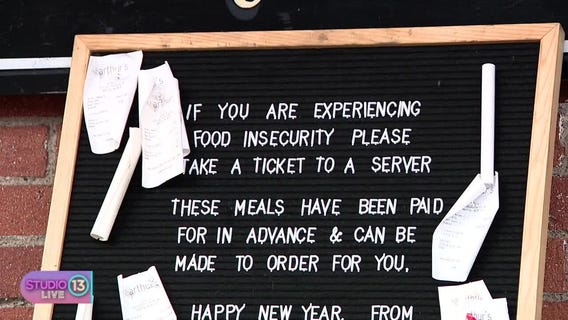 IF YOU ARE EXPERIENCING
FOOD INSECURITY PLEASE
TAKE A TICKET TO A SERVER
THESE MEALS HAVE BEEN PAID
FOR IN ADVANCE & CAN BE
MADE TO ORDER FOR YOU.
HAPPY NEW YEAR, FROM
STUDIO 13
LIVE